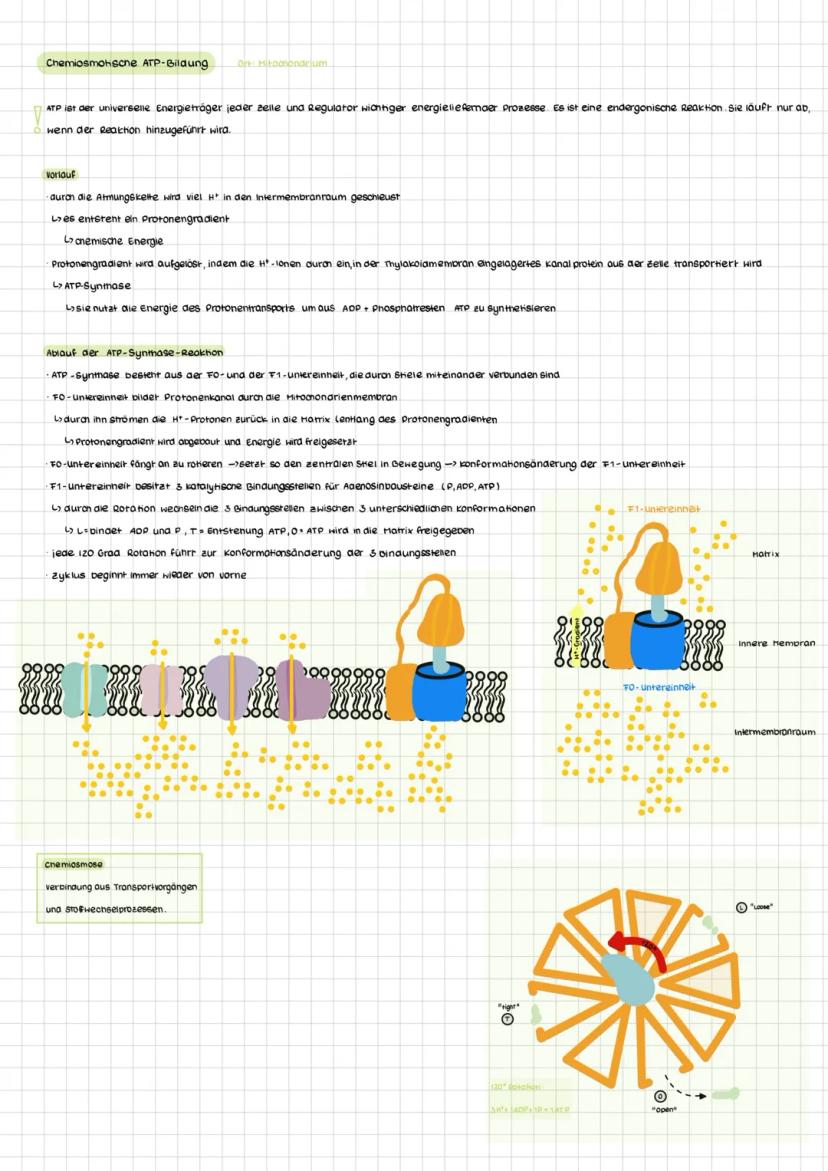 Chemiosmotische ATP-Bildung
Ort: Mitochondrium
! ATP ist der universelle Energieträger jeder Zelle und Regulator wichtiger energieliefernder Prozesse. Es ist eine endergonische Reaktion. Sie läuft nur ab,
wenn der Reaktion hinzugeführt wird.
Vorlauf
· durch die Atmungskette wird viel H⁺ in den Intermembranraum geschleust
↳ es entsteht ein Protonengradient
↳ chemische Energie
· Protonengradient wird aufgelöst, indem die H⁺-Ionen durch ein, in der Thylakoidmembran eingelagertes Kanalprotein aus der Zelle transportiert wird
↳ ATP-Synthase
↳ sie nutzt die Energie des Protonentransports um aus ADP + Phosphatresten ATP zu synthetisieren
Ablauf der ATP-Synthase-Reaktion
· ATP-Synthase besteht aus der F0- und der F1-Untereinheit, die durch Stiele miteinander verbunden sind
· F0-Untereinheit bildet Protonenkanal durch die Mitochondrienmembran
↳ durch ihn strömen die H⁺-Protonen zurück in die Matrix (entlang des Protonengradienten
↳ Protonengradient wird abgebaut und Energie wird freigesetzt
· F0-Untereinheit fängt an zu rotieren → setzt so den zentralen Stiel in Bewegung → Konformationsänderung der F1-Untereinheit
· F1-Untereinheit besitzt 3 katalytische Bindungsstellen für Adenosinbausteine (P, ADP, ATP)
↳ durch die Rotation wechseln die 3 Bindungsstellen zwischen 3 unterschiedlichen Konformationen
↳ L = bindet ADP und P, T = Entstehung ATP, O = ATP wird in die Matrix freigegeben
· jede 120 Grad Rotation führt zur Konformationsänderung der 3 Bindungsstellen
· Zyklus beginnt immer wieder von vorne
F1-Untereinheit
Matrix
H⁺-Gradient
Innere Membran
F0-Untereinheit
Intermembranraum
Chemiosmose
Verbindung aus Transportvorgängen
und Stoffwechselprozessen.
L "Loose"
120°
"tight"
T
O
"Open"
120° Rotation
3H⁺ + 1ADP + 1P = 1ATP